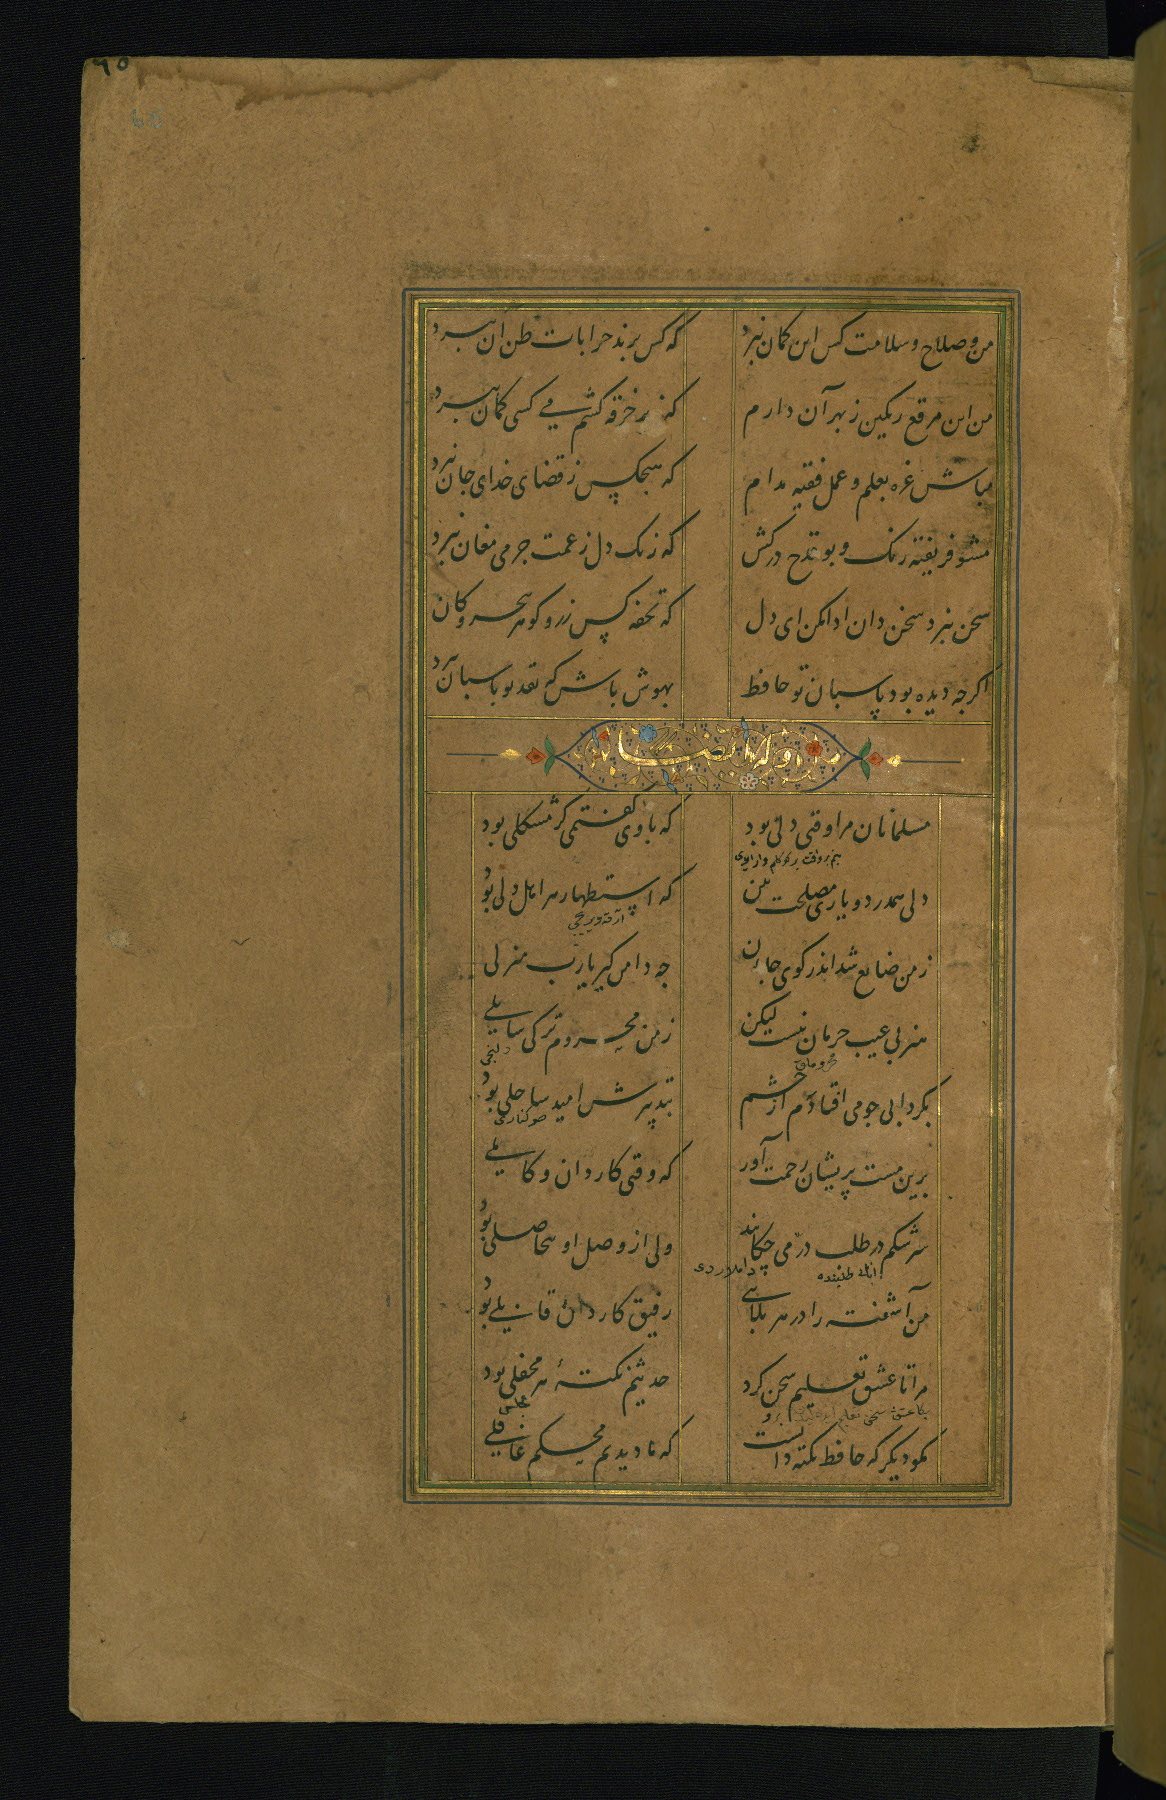 ٦٥
من و صلاح و سلامت کس این کمان نبرد
که کس برند خرابات ظن آن نبرد
من این مرقع رنکین ز بهر آن دارم
که زیر خرقه کشم می کسی کمان نبرد
مباش غره بعلم و عمل فقیه مدام
که هیچکس ز قضای خدای جان نبرد
مشو فریفته رنک و بو قدح درکش
که زنک دل ز غمت جز می مغان نبرد
سخن نبرد سخن دان ادا مکن ای دل
که تحفه کس زر و کوهر ببحر و کان نبرد
اکرچه دیده بود پاسبان تو حافظ
بهوش باش که نقد تو پاسبان نبرد
وله ایضا
مسلمانان مرا وقتی دلی بود
که با وی کفتمی کر مشکلی بود
دلی همدرد و یاری مصلحت بین
که استظهار هر اهل دلی بود
ز من ضایع شد اندر کوی جانان
چه دامن کیر یارب منزلی
هنر بی عیب حرمان نیست لیکن
ز من محروم تر کی سایلی
بکردابی چو می افتادم از چشم
بتدبیرش امید ساحلی بود
برین مست پریشان رحمت آور
که وقتی کاردان و کاملی
سرشکم در طلب در می چکاند
ولی از وصل او بیحاصلی بود
من آشفته را در هر بلایی
رفیق کاردان قابلی بود
مرا تا عشق تعلیم سخن کرد
حدیثم نکتهٔ هر محفلی بود
مکو دیکر که حافظ نکته دانست
که ما دیدیم محکم غافلی